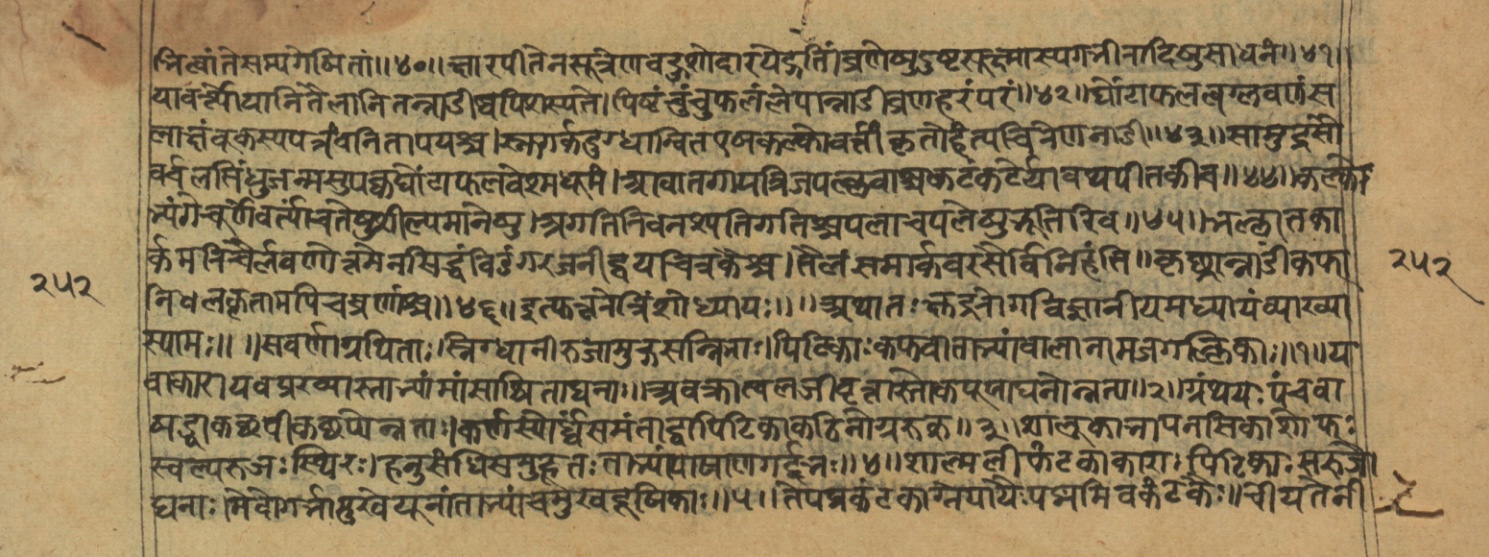 भिन्नांतेसम्यगेषितां॥४०॥क्षारपीतेनसूत्रेणबहुशोदारयेद्गतिं।व्रणेषुदुष्टसूक्ष्मास्यगंभीरादिषुसाधनं॥४१॥
यावर्त्योयानितैलानितन्नाडीष्वपिशस्यते।पिष्टंचुंचुफलंलेपान्नाडीव्रणहरंपरं॥४२॥घोंटाफलत्वग्लवणंस
लाक्षंबूकस्यपत्रंवनितापयश्च।स्नुगर्कदुग्धान्वितएषकल्कोवर्त्तीकृतोहंत्यचिरेणनाडीं॥४३॥सामुद्रसौ
वर्चलसिंधुजन्मसुपक्वघोंटाफलवेश्मधूमं।आम्रातगायत्रिजपल्लवाश्चकटंकटेर्यावथपीतकीच॥४४॥कल्के
भ्यंगेचूर्णेवर्त्यांचैतेषुशील्यमानेषु।अगतिरिवनश्यतिगतिश्चपलाचपलेषुभूतिरिव॥४५॥भल्लातका
र्कमरिचैर्लवणोत्तमेनसिद्धंविडंगरजनीद्वयचित्रकैश्च।तैलंसमार्कवरसैर्विनिहंति॥कृच्छ्रान्नाडींकफा
निलकृतामपिचव्रणांश्च॥४६॥इत्युत्तरेत्रिंशोध्यायः॥॥अथातःक्षुद्ररोगविज्ञानीयमध्यायंव्याख्या
स्यामः॥॥सवर्णाग्रथिताः।स्निग्धानीरुजामुद्गसन्निभाः।पिटिकाःकफवाताभ्यांबालानामजगल्लिकाः॥१॥य
वाकारायवप्रख्यास्ताभ्यांमांसाश्रिताघनाः॥अवक्रात्वलजीवृत्तास्तोकपूयाघनोन्नता॥२॥ग्रंथयःपंचवा
षड्वाकच्छपीकच्छपोन्नताः।कर्णस्योर्ध्वंसमंताद्वापिटिकाकठिनोग्ररुक्॥३॥शालूकाभापनसिकाशोफः
स्वल्परुजःस्थिरः।हनुसंधिसमुद्भूतःताभ्यांपाषाणगर्द्दभः॥४॥शाल्मलीकंटकाकाराःपिटिकाःसरुजो
घनाः।मेदोगर्भामुखेयूनांताभ्यांचमुखदूषिकाः॥५॥तेपद्मकंटकाज्ञेयायैःपद्ममिवकंटकैः॥चीयतेनी
२५२
२५२